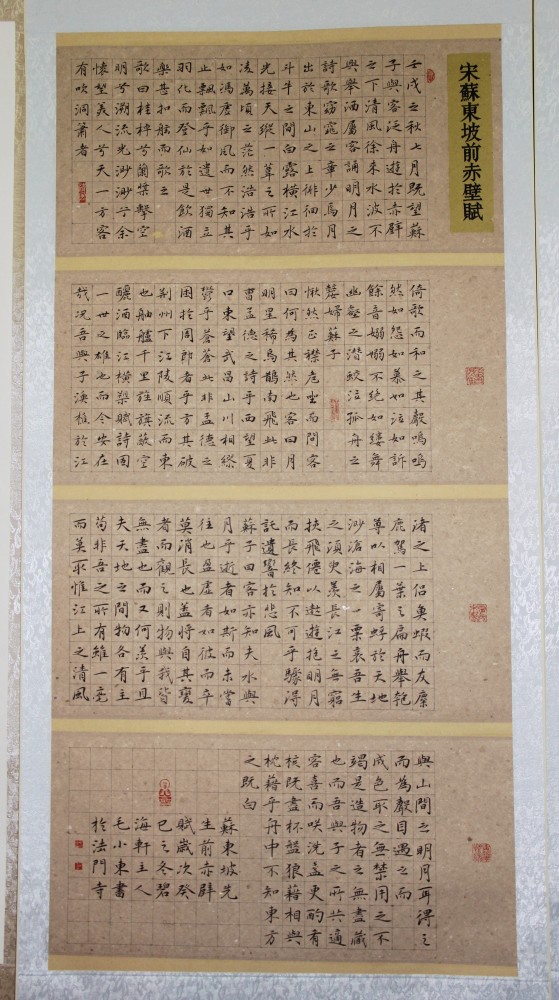 宋蘇東坡前赤壁賦
壬戌之秋七月既望蘇
子與客泛舟遊於赤壁
之下清風徐來水波不
興舉酒屬客誦明月之
詩歌窈窕之章少焉月
出於東山之上徘徊於
斗牛之間白露橫江水
光接天縱一葦之所如
凌萬頃之茫然浩浩乎
如馮虛御風而不知其
止飄飄乎如遺世獨立
羽化而登仙於是飲酒
樂甚扣舷而歌之
歌曰桂棹兮蘭槳擊空
明兮溯流光渺渺兮余
懷望美人兮天一方客
有吹洞簫者
倚歌而和之其聲嗚嗚
然如怨如慕如泣如訴
餘音嫋嫋不絕如縷舞
幽壑之潛蛟泣孤舟之
嫠婦蘇子
愀然正襟危坐而問客
曰何為其然也客曰月
明星稀烏鵲南飛此非
曹孟德之詩乎西望夏
口東望武昌山川相繆
鬱乎蒼蒼此非孟德之
困於周郎者乎方其破
荊州下江陵順流而東
也舳艫千里旌旗蔽空
釃酒臨江橫槊賦詩固
一世之雄也而今安在
哉況吾與子漁樵於江
渚之上侶魚蝦而友麋
鹿駕一葉之扁舟舉匏
尊以相屬寄蜉於天地
渺滄海之一粟哀吾生
之須臾羨長江之無窮
挾飛僊以遨遊抱明月
而長終知不可乎驟得
託遺響於悲風
蘇子曰客亦知夫水與
月乎逝者如斯而未嘗
往也盈虛者如彼而卒
莫消長也蓋將自其變
者而觀之則物與我皆
無盡也而又何羨乎且
夫天地之間物各有主
苟非吾之所有雖一毫
而莫取惟江上之清風
與山間之明月耳得之
而為聲目遇之而
成色取之無禁用之不
竭是造物者之無盡藏
也而吾與子之所共適
客喜而咲洗盞更酌有
核既盡杯盤狼藉相與
枕藉乎舟中不知東方
之既白
蘇東坡先
生前赤壁
賦歲次癸
巳之冬碧
海軒主人
毛小東書
於法門寺